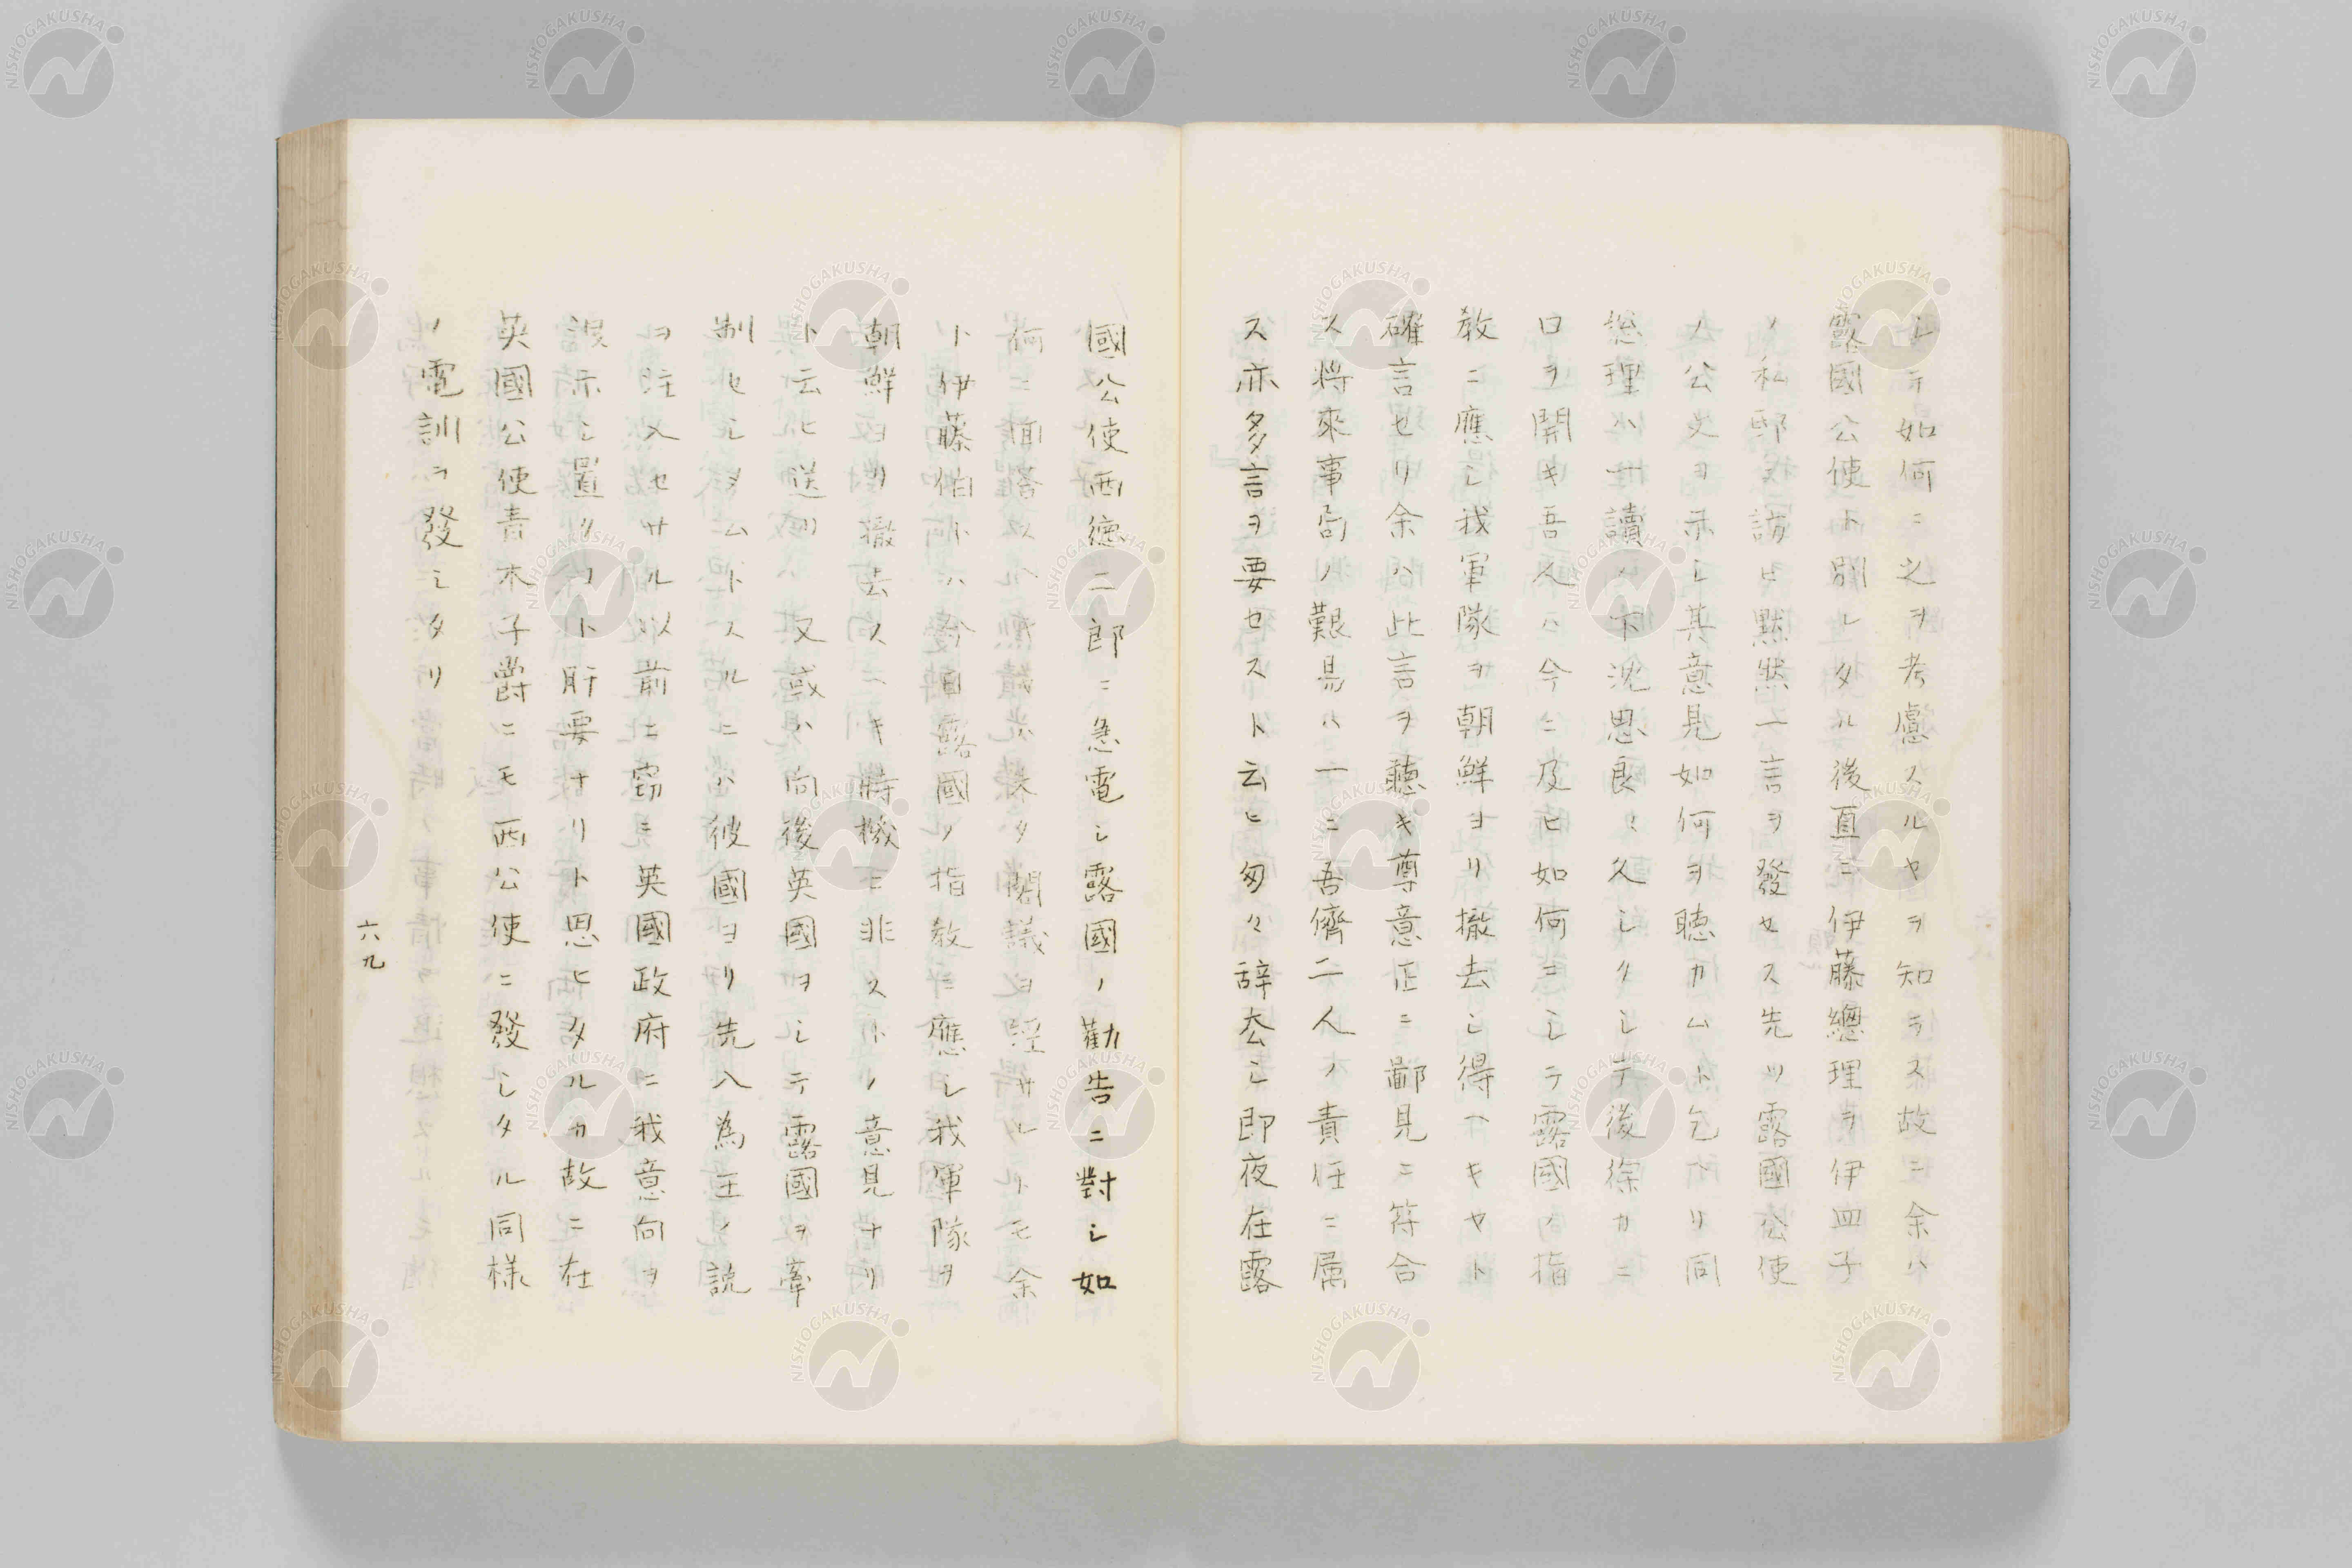 シテ如何ニ之ヲ考慮スルヤヲ知ラス故ニ余ハ
露國公使ト別レタル後直ニ伊藤總理ヲ伊皿子
ノ私邸ニ訪ヒ黙然一言ヲ發セス先ツ露國公使
ノ公文ヲ示シ其意見如何ヲ聴カムト乞ヘリ同
総理ハ一讀ノ下沈思良々久シクシテ後徐カニ
口ヲ開キ吾人ハ今ニ及ヒ如何ニシテ露國ノ指
教ニ應シ我軍隊ヲ朝鮮ヨリ撤去シ得ヘキヤト
確言セリ余ハ此言ヲ聴キ尊意正ニ鄙見ニ符合
ス将來事局ノ艱易ハ一ニ吾儕二人ノ責任ニ属
ス亦多言ヲ要セスト云ヒ匆々辞去シ即夜在露
國公使西徳二郎ニ急電シ露國ノ勸告ニ對シ如
何ニ回答スヘ 未タ閣議ヲ経得サルトモ余
ト伊藤伯トハ今日露國ノ指教ニ應シ我軍隊ヲ
朝鮮ヨリ撤去スヘキ時機ニ非ストノ意見ナリ
ト云ヒ送リ又或ハ向後英國ヲシテ露國ヲ牽
制セシメムトスルニハ彼國ヨリ先入為主ノ説
ヲ注入セサル以前ニ窃ニ英國政府ニ我意向ヲ
示シ置クコト肝要ナリト思ヒタルカ故ニ在
英國公使青木子爵ニモ西公使ニ發シタル同様
ノ電訓ヲ發シタリ
六九
NISHOGAKUSHA